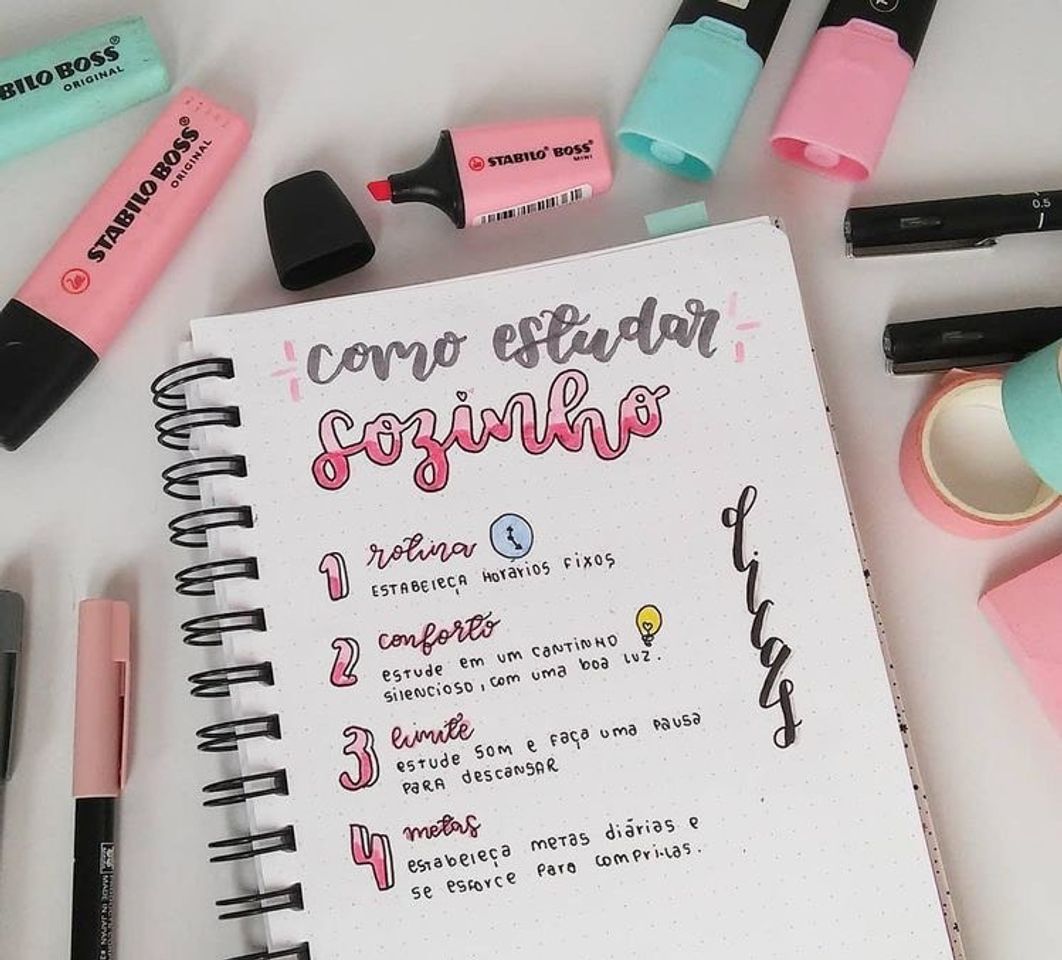 BILO BOSS®
ORIGINAL
STABILO BOSS®
ORIGINAL
STABILO® BOSS®
MINI
0.5
como estudar
sozinho
1 rotina
ESTABELEÇA HORÁRIOS FIXOS
2 conforto
ESTUDE EM UM CANTINHO
SILENCIOSO, COM UMA BOA LUZ.
3 limite
ESTUDE 50m E FAÇA UMA PAUSA
PARA DESCANSAR
4 metas
ESTABELEÇA METAS DIÁRIAS E
SE ESFORCE PARA COMPRI-LAS.
dicas
MADE IN JAPAN